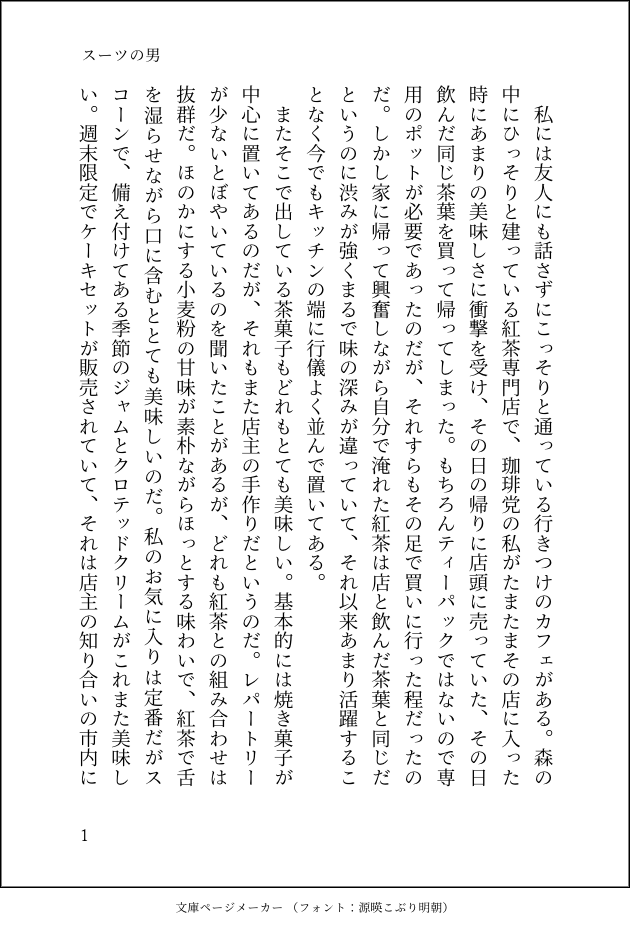 スーツの男
　私には友人にも話さずにこっそりと通っている行きつけのカフェがある。森の
中にひっそりと建っている紅茶専門店で、珈琲党の私がたまたまその店に入った
時にあまりの美味しさに衝撃を受け、その日の帰りに店頭に売っていた、その日
飲んだ同じ茶葉を買って帰ってしまった。もちろんティーパックではないので専
用のポットが必要であったのだが、それすらもその足で買いに行った程だったの
だ。しかし家に帰って興奮しながら自分で淹れた紅茶は店と飲んだ茶葉と同じだ
というのに渋みが強くまるで味の深みが違っていて、それ以来あまり活躍するこ
となく今でもキッチンの端に行儀よく並んで置いてある。
　またそこで出している茶菓子もどれもとても美味しい。基本的には焼き菓子が
中心に置いてあるのだが、それもまた店主の手作りだというのだ。レパートリー
が少ないとぼやいているのを聞いたことがあるが、どれも紅茶との組み合わせは
抜群だ。ほのかにする小麦粉の甘味が素朴ながらほっとする味わいで、紅茶で舌
を湿らせながら口に含むととても美味しいのだ。私のお気に入りは定番だがス
コーンで、備え付けてある季節のジャムとクロテッドクリームがこれまた美味し
い。週末限定でケーキセットが販売されていて、それは店主の知り合いの市内に
1
文庫ページメーカー（フォント：源暎こぶり明朝）